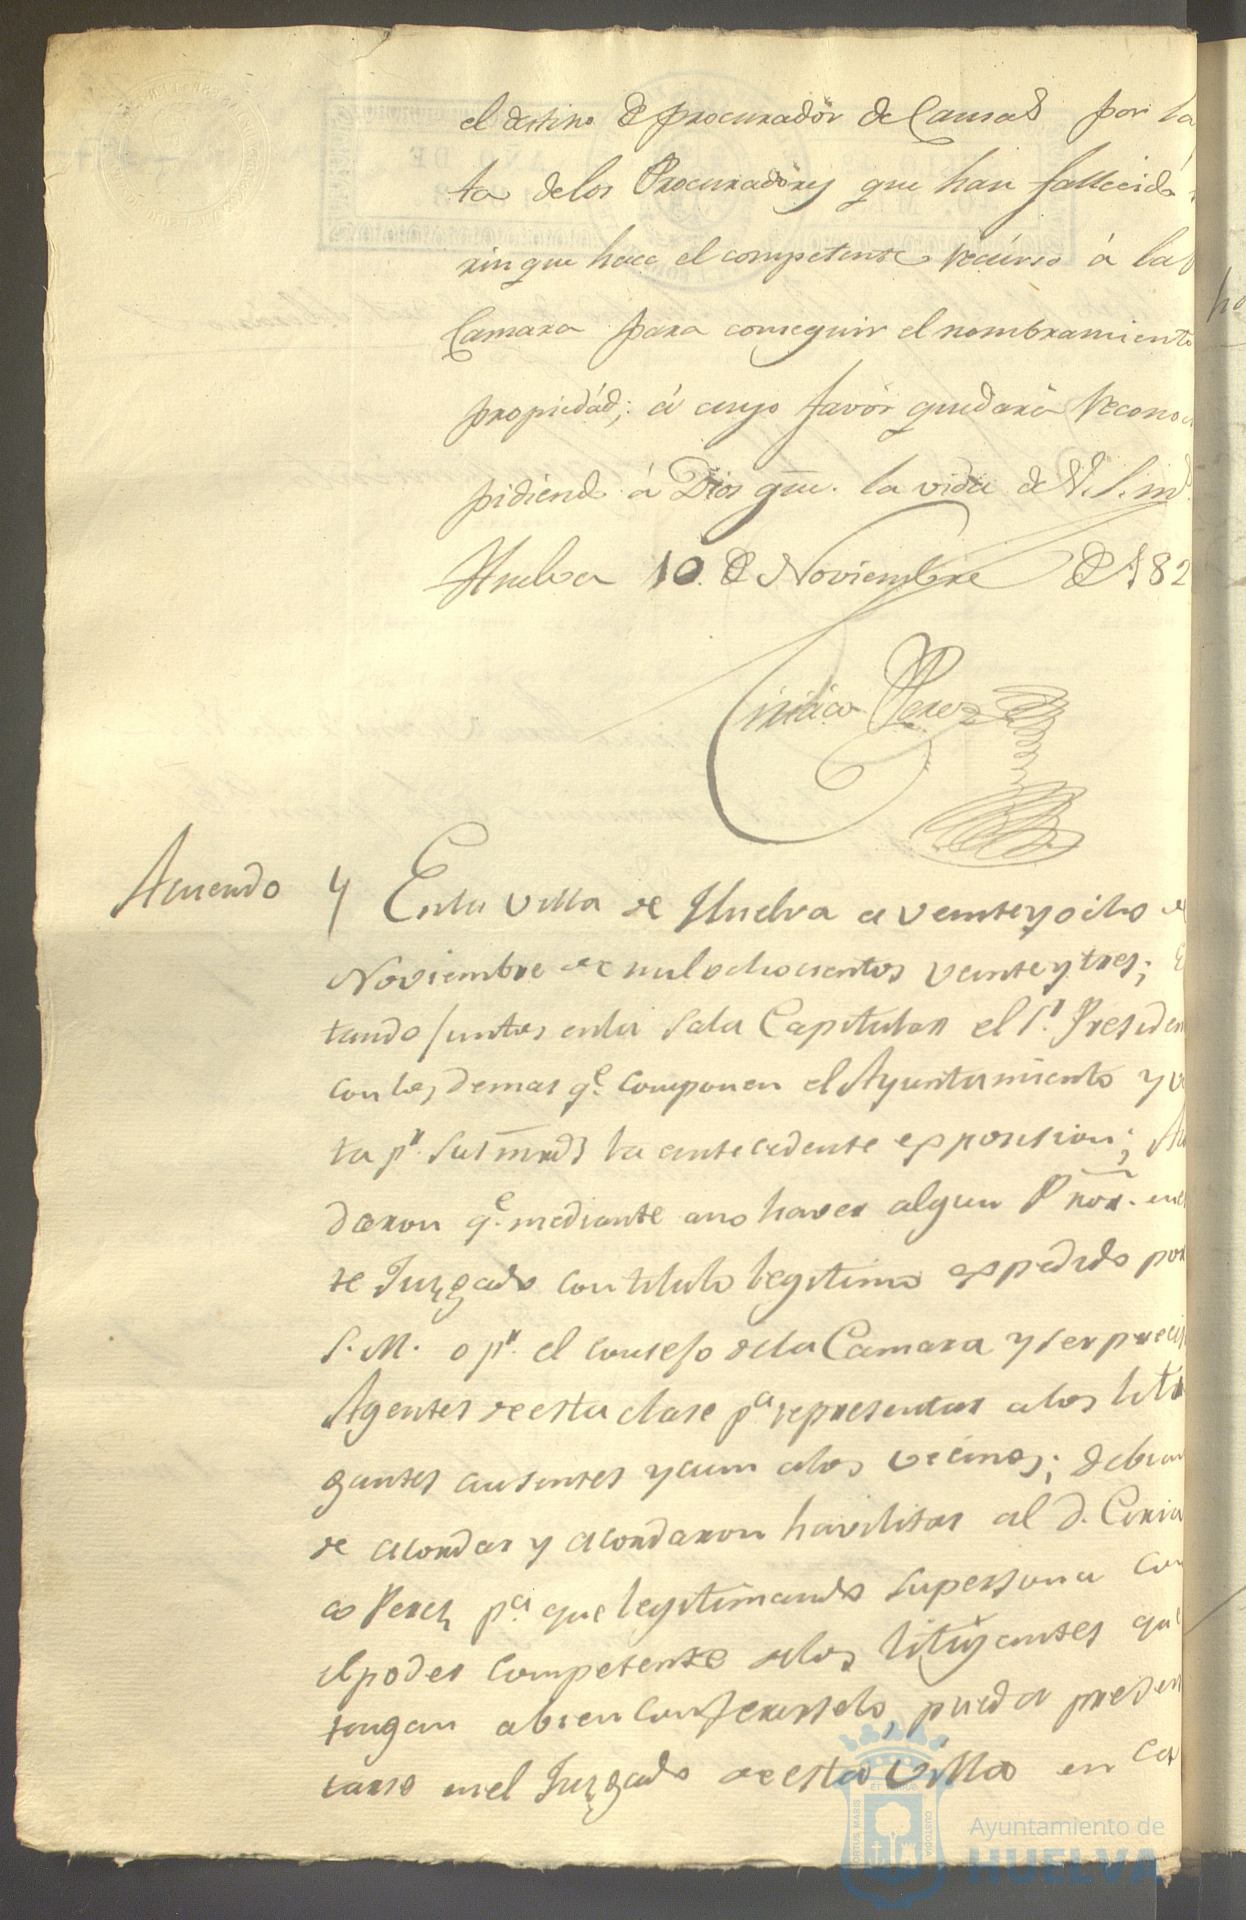 el destino de procurador de Causas por la
ta delos Procuradores que han fallecido
sin que hace el competente recurso á la
Camara para conseguir el nombramiento
propiedád; á cuyo favór quedará recono
pidiendo á Dios gue. la vida de V.S. m
Huelva 10. de Noviembre de 182
Ciriaco Perez
Acuerdo Y Enla Villa de Huelva a veinte y ocho de
Noviembre de mil ochocientos veinte y tres; E
tando juntos enla Sala Capitular el Sr. Presiden
con los demas qe. componen el Ayuntamiento y v
ta pr. sus mrds la antecedente exposicion; A
daron qe. mediante ano haver algun Pror. en
te Juzgado con titulo legitimo expedido por
S.M. o pr. el consejo dela Camara y ser preci
Agentes de esta clase pa. representar alos liti
gantes ausentes y aun alos vecinos; debian
de acordar y acordaron havilitar al d. Ciria
co Perez pa. que legitimando su persona con
el poder competente delos litigantes que
tengan abien conferirselo, pueda presen
tarse enel Juzgado de esta Villa en ca
Ayuntamiento de
HUELVA
PORTUS MARIS
ET TERRAE
CUSTODIA